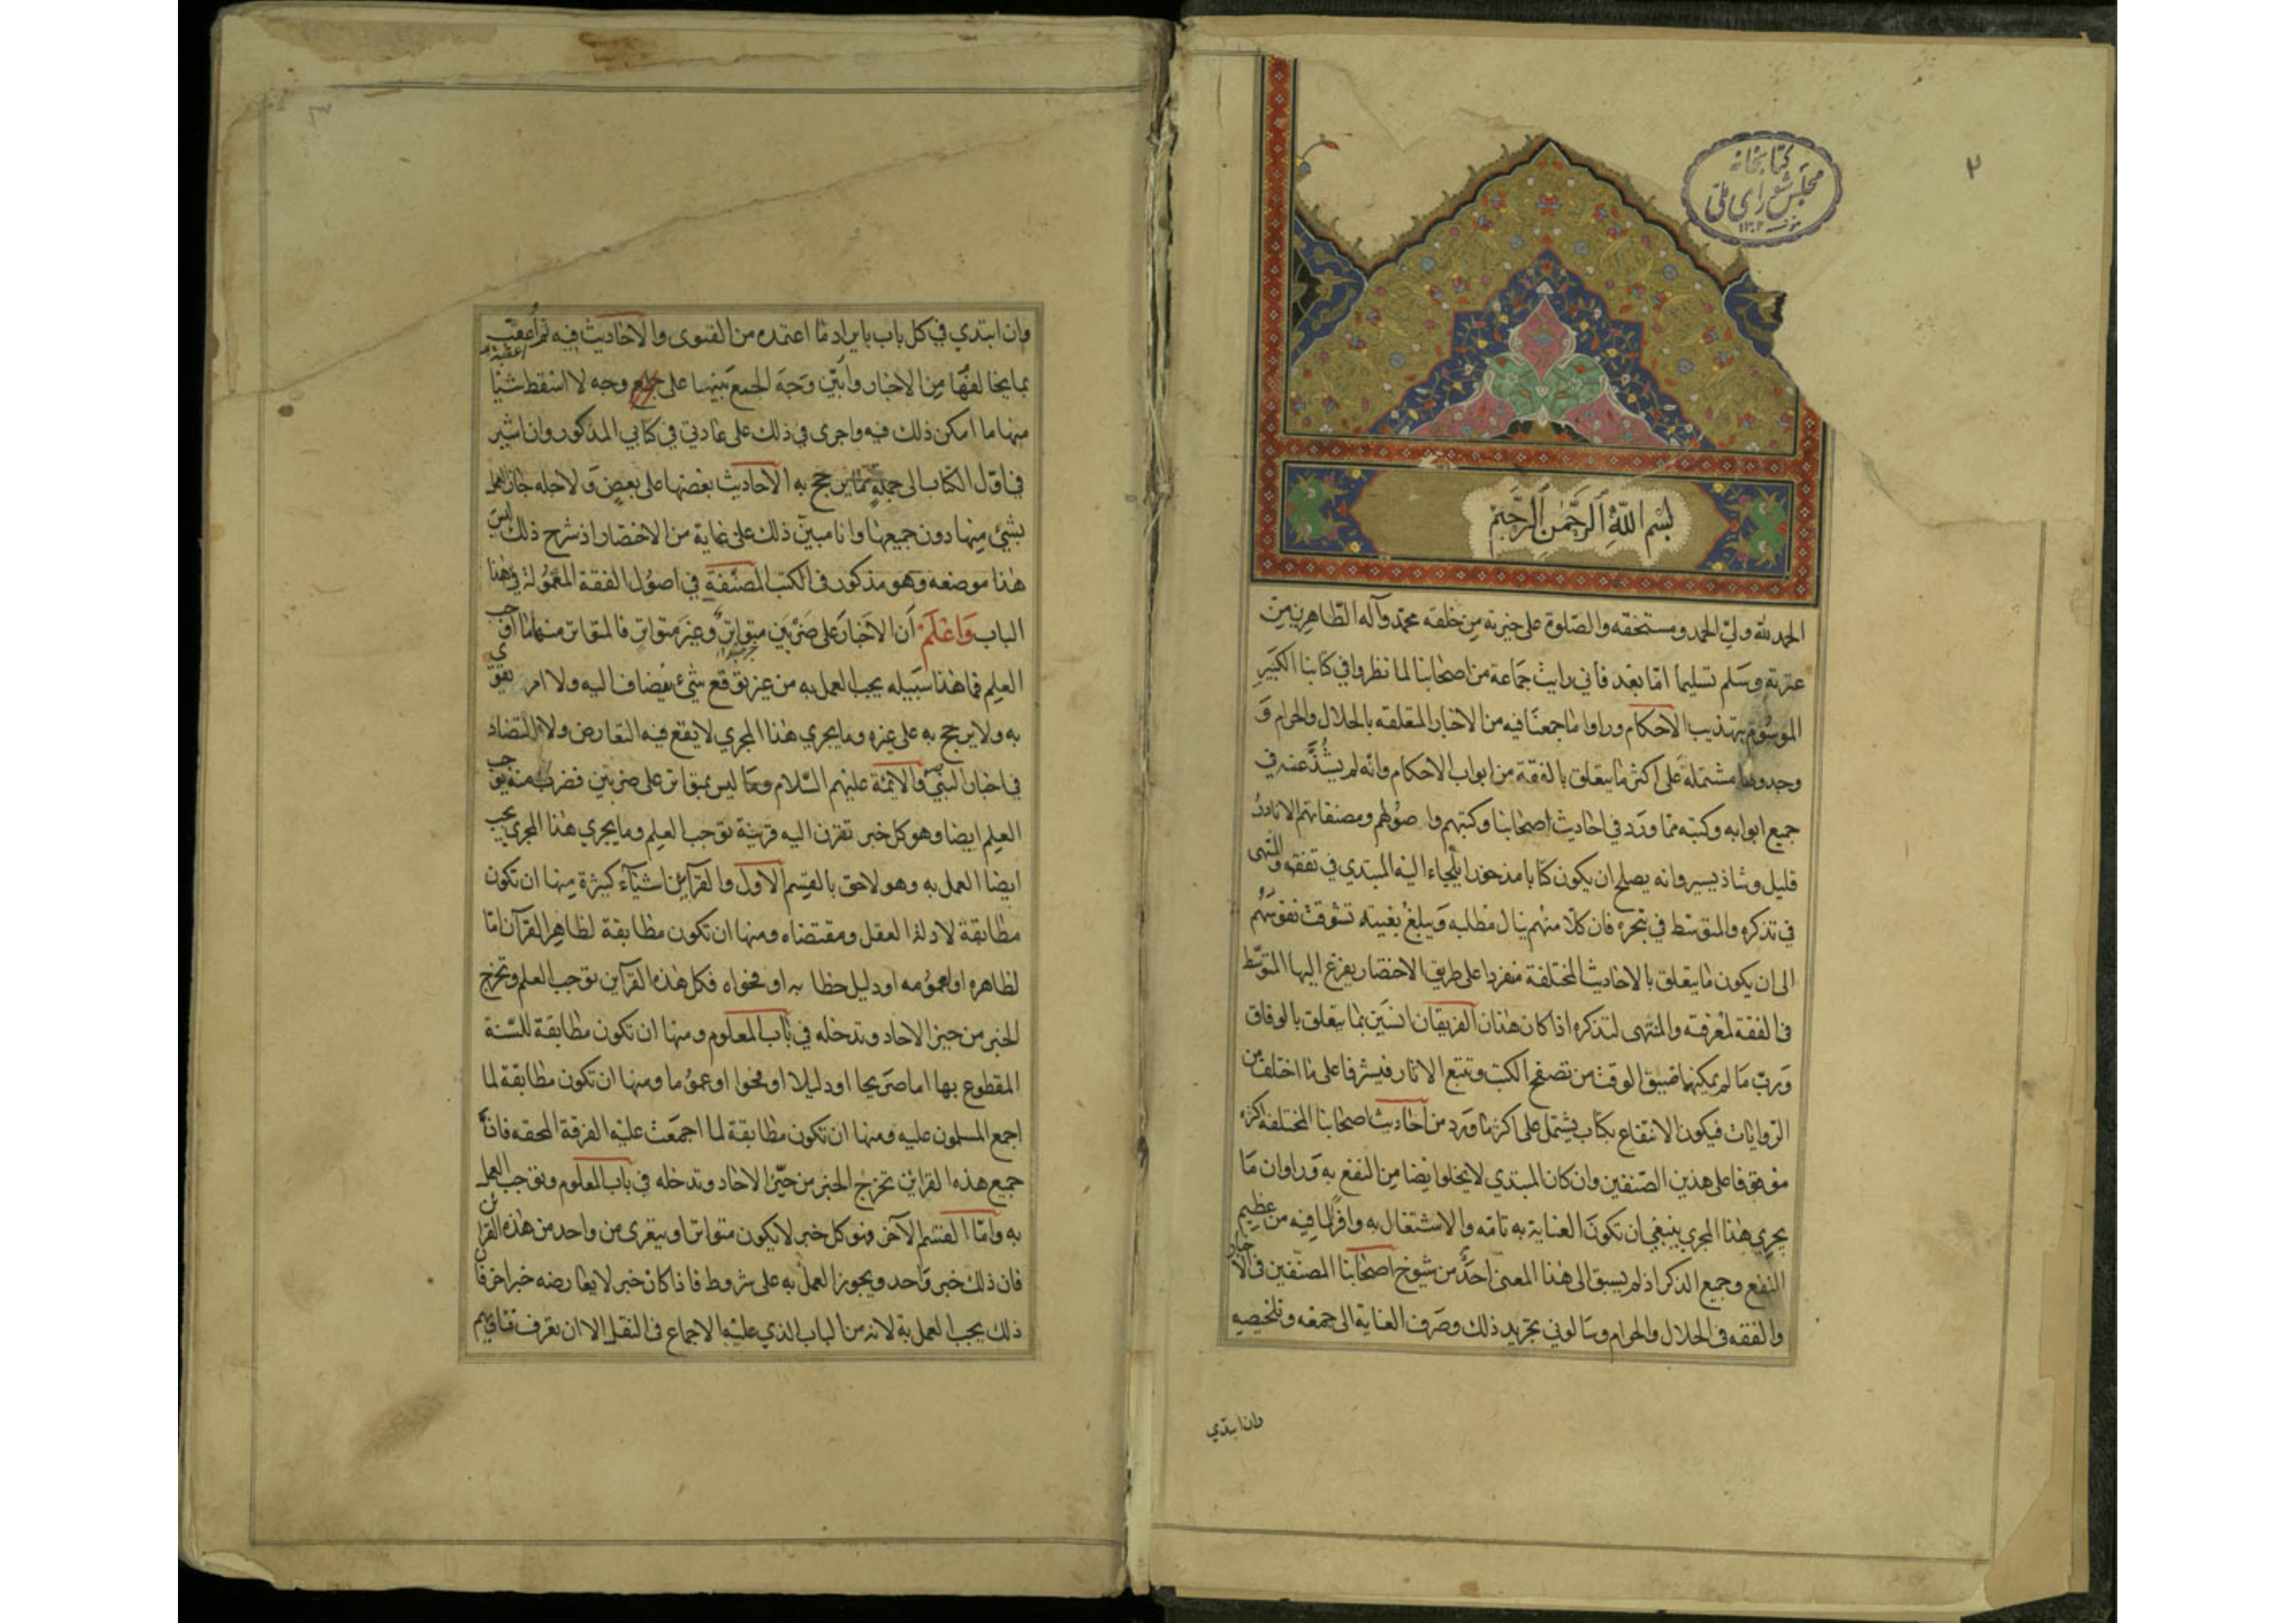 ٢
كتابخانه
مجلس شورای ملی
١٣٠٢
بسم الله الرحمن الرحيم
الحمد لله ولي الحمد ومستحقه والصلوة على خيرته من خلقه محمد وآله الطاهرين من
عترته وسلم تسليما اما بعد فاني رايت جماعة من اصحابنا لما نظروا في كتابنا الكبير
الموسوم بتهذيب الاحكام وراوا ما جمعنا فيه من الاخبار المتعلقه بالحلال والحرام و
وجدوها مشتملة على اكثر ما يتعلق بالفقه من ابواب الاحكام وانه لم يشذ عنه في
جميع ابوابه وكتبه مما ورد في احاديث اصحابنا وكتبهم واصولهم ومصنفاتهم الا نادر
قليل وشاذ يسير وانه يصلح ان يكون كتابا مذخورا يلجاء اليه المبتدي في تفقهه والمنتهى
في تذكره والمتوسط في تبحره فان كلا منهم ينال مطلبه ويبلغ بغيته تشوقت نفوسهم
الى ان يكون ما يتعلق بالاحاديث المختلفة منفردا على طريق الاختصار يفزع اليها المتوسط
في الفقه لمعرفته والمنتهى لتذكره اذا كان هذان الفريقان انسين بما يتعلق بالوفاق
ورب ما لم يمكنهما ضيق الوقت من تصفح الكتب وتتبع الاثار فيشرفا على ما اختلف من
الروايات فيكون الانتفاع بكتاب يشتمل على اكثر ما ورد من احاديث اصحابنا المختلفه اكثره
موقوفا على هذين الصنفين وان كان المبتدي لا يخلوا ايضا من النفع به وراوا ان ما
يجري هذا المجرى ينبغي ان تكون العناية به تامه والاشتغال به وافرا لما فيه من عظيم
النفع وجميع الذكر اذ لم يسبق الى هذا المعنى احد من شيوخ اصحابنا المصنفين في الاخبار
والفقه في الحلال والحرام وسالوني تجريد ذلك وصرف العناية الى جمعه وتلخيصه
وان ابتدي
وان ابتدي في كل باب بايراد ما اعتمده من الفتوى والاحاديث فيه ثم اعقب
بما يخالفها من الاخبار وابين وجه الجمع بينها على وجه لا اسقط شيئا
منها ما امكن ذلك فيه واجرى في ذلك على عادتي في كتابي المذكور وان اشير
في اول الكتاب الى جملة مما يرجح به الاحاديث بعضها على بعض ولاجله جاز العمل
بشئ منها دون جميعها وانا مبين ذلك على غاية من الاختصار اذ شرح ذلك ليس
هذا موضعه وهو مذكور في الكتب المصنفة في اصول الفقه المعمولة في هذا
الباب واعلم ان الاخبار على ضربين متواتر وغير متواتر فالمتواتر منهما ما اوجب
العلم فما هذا سبيله يجب العمل به من غير توقع شئ يضاف اليه ولا امر يقوى
به ولا يرجح به على غيره وما يجري هذا المجرى لا يقع فيه التعارض ولا التضاد
في اخبار النبي والائمة عليهم السلام وما ليس بمتواتر على ضربين فضرب منه يوجب
العلم ايضا وهو كل خبر تقترن اليه قرينة توجب العلم وما يجري هذا المجرى يجب
ايضا العمل به وهو لاحق بالقسم الاول والقرآين اشيآء كثيرة منها ان تكون
مطابقة لادلة العقل ومقتضاه ومنها ان تكون مطابقة لظاهر القرآن اما
لظاهره او عمومه او دليل خطابه او فحواه فكل هذه القرآين توجب العلم وتخرج
الخبر من حيز الاحاد وتدخله في باب المعلوم ومنها ان تكون مطابقة للسنة
المقطوع بها اما صريحا او دليلا او فحوا او عموما ومنها ان تكون مطابقة لما
اجمع المسلمون عليه ومنها ان تكون مطابقة لما اجمعت عليه الفرقة المحقه فان
جميع هذه القراين تخرج الخبر من حيز الاحاد وتدخله في باب المعلوم وتوجب العمل
به واما القسم الآخر فهو كل خبر لا يكون متواترا ويتعرى من واحد من هذه القراين
فان ذلك خبر واحد ويجوز العمل به على شروط فاذا كان خبر لا يعارضه خبر اخر فان
ذلك يجب العمل به لانه من الباب الذي عليه الاجماع في النقل الا ان تعرف فتاويهم